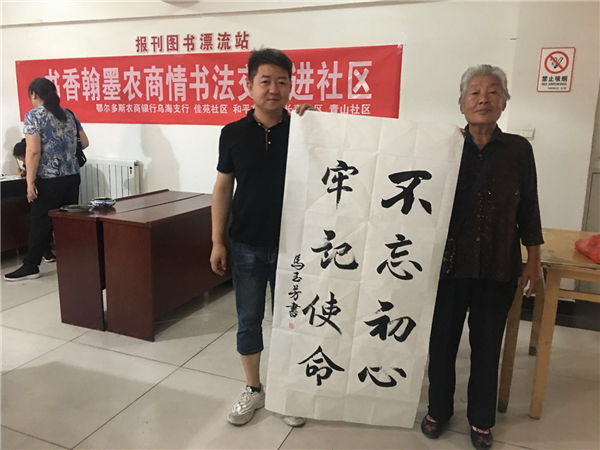 报刊图书漂流站
书香翰墨农商情书法 进社区
鄂尔多斯农商银行乌海支行 佳苑社区 和平 区 青山社区
禁止吸烟
不忘初心
牢记使命
馬玉芳書